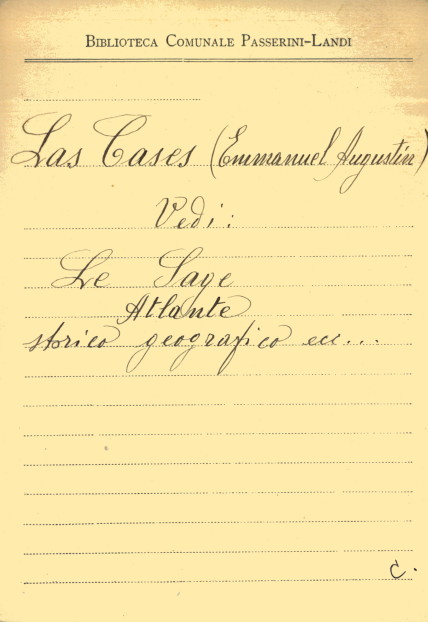 Biblioteca Comunale Passerini-Landi
Las Cases (Emmanuel Augustin)
Vedi:
Le Sage
Atlante
storico geografico ecc...
C.